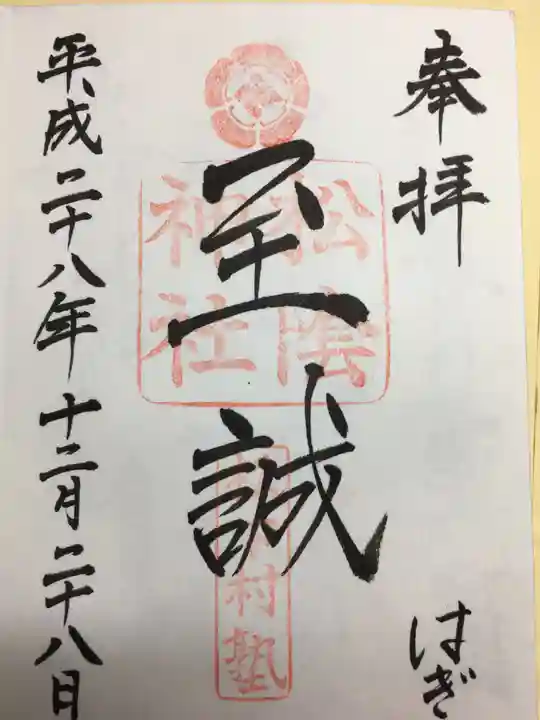 奉拝
はぎ
至誠
松陰神社
村塾
平成二十八年十二月二十八日